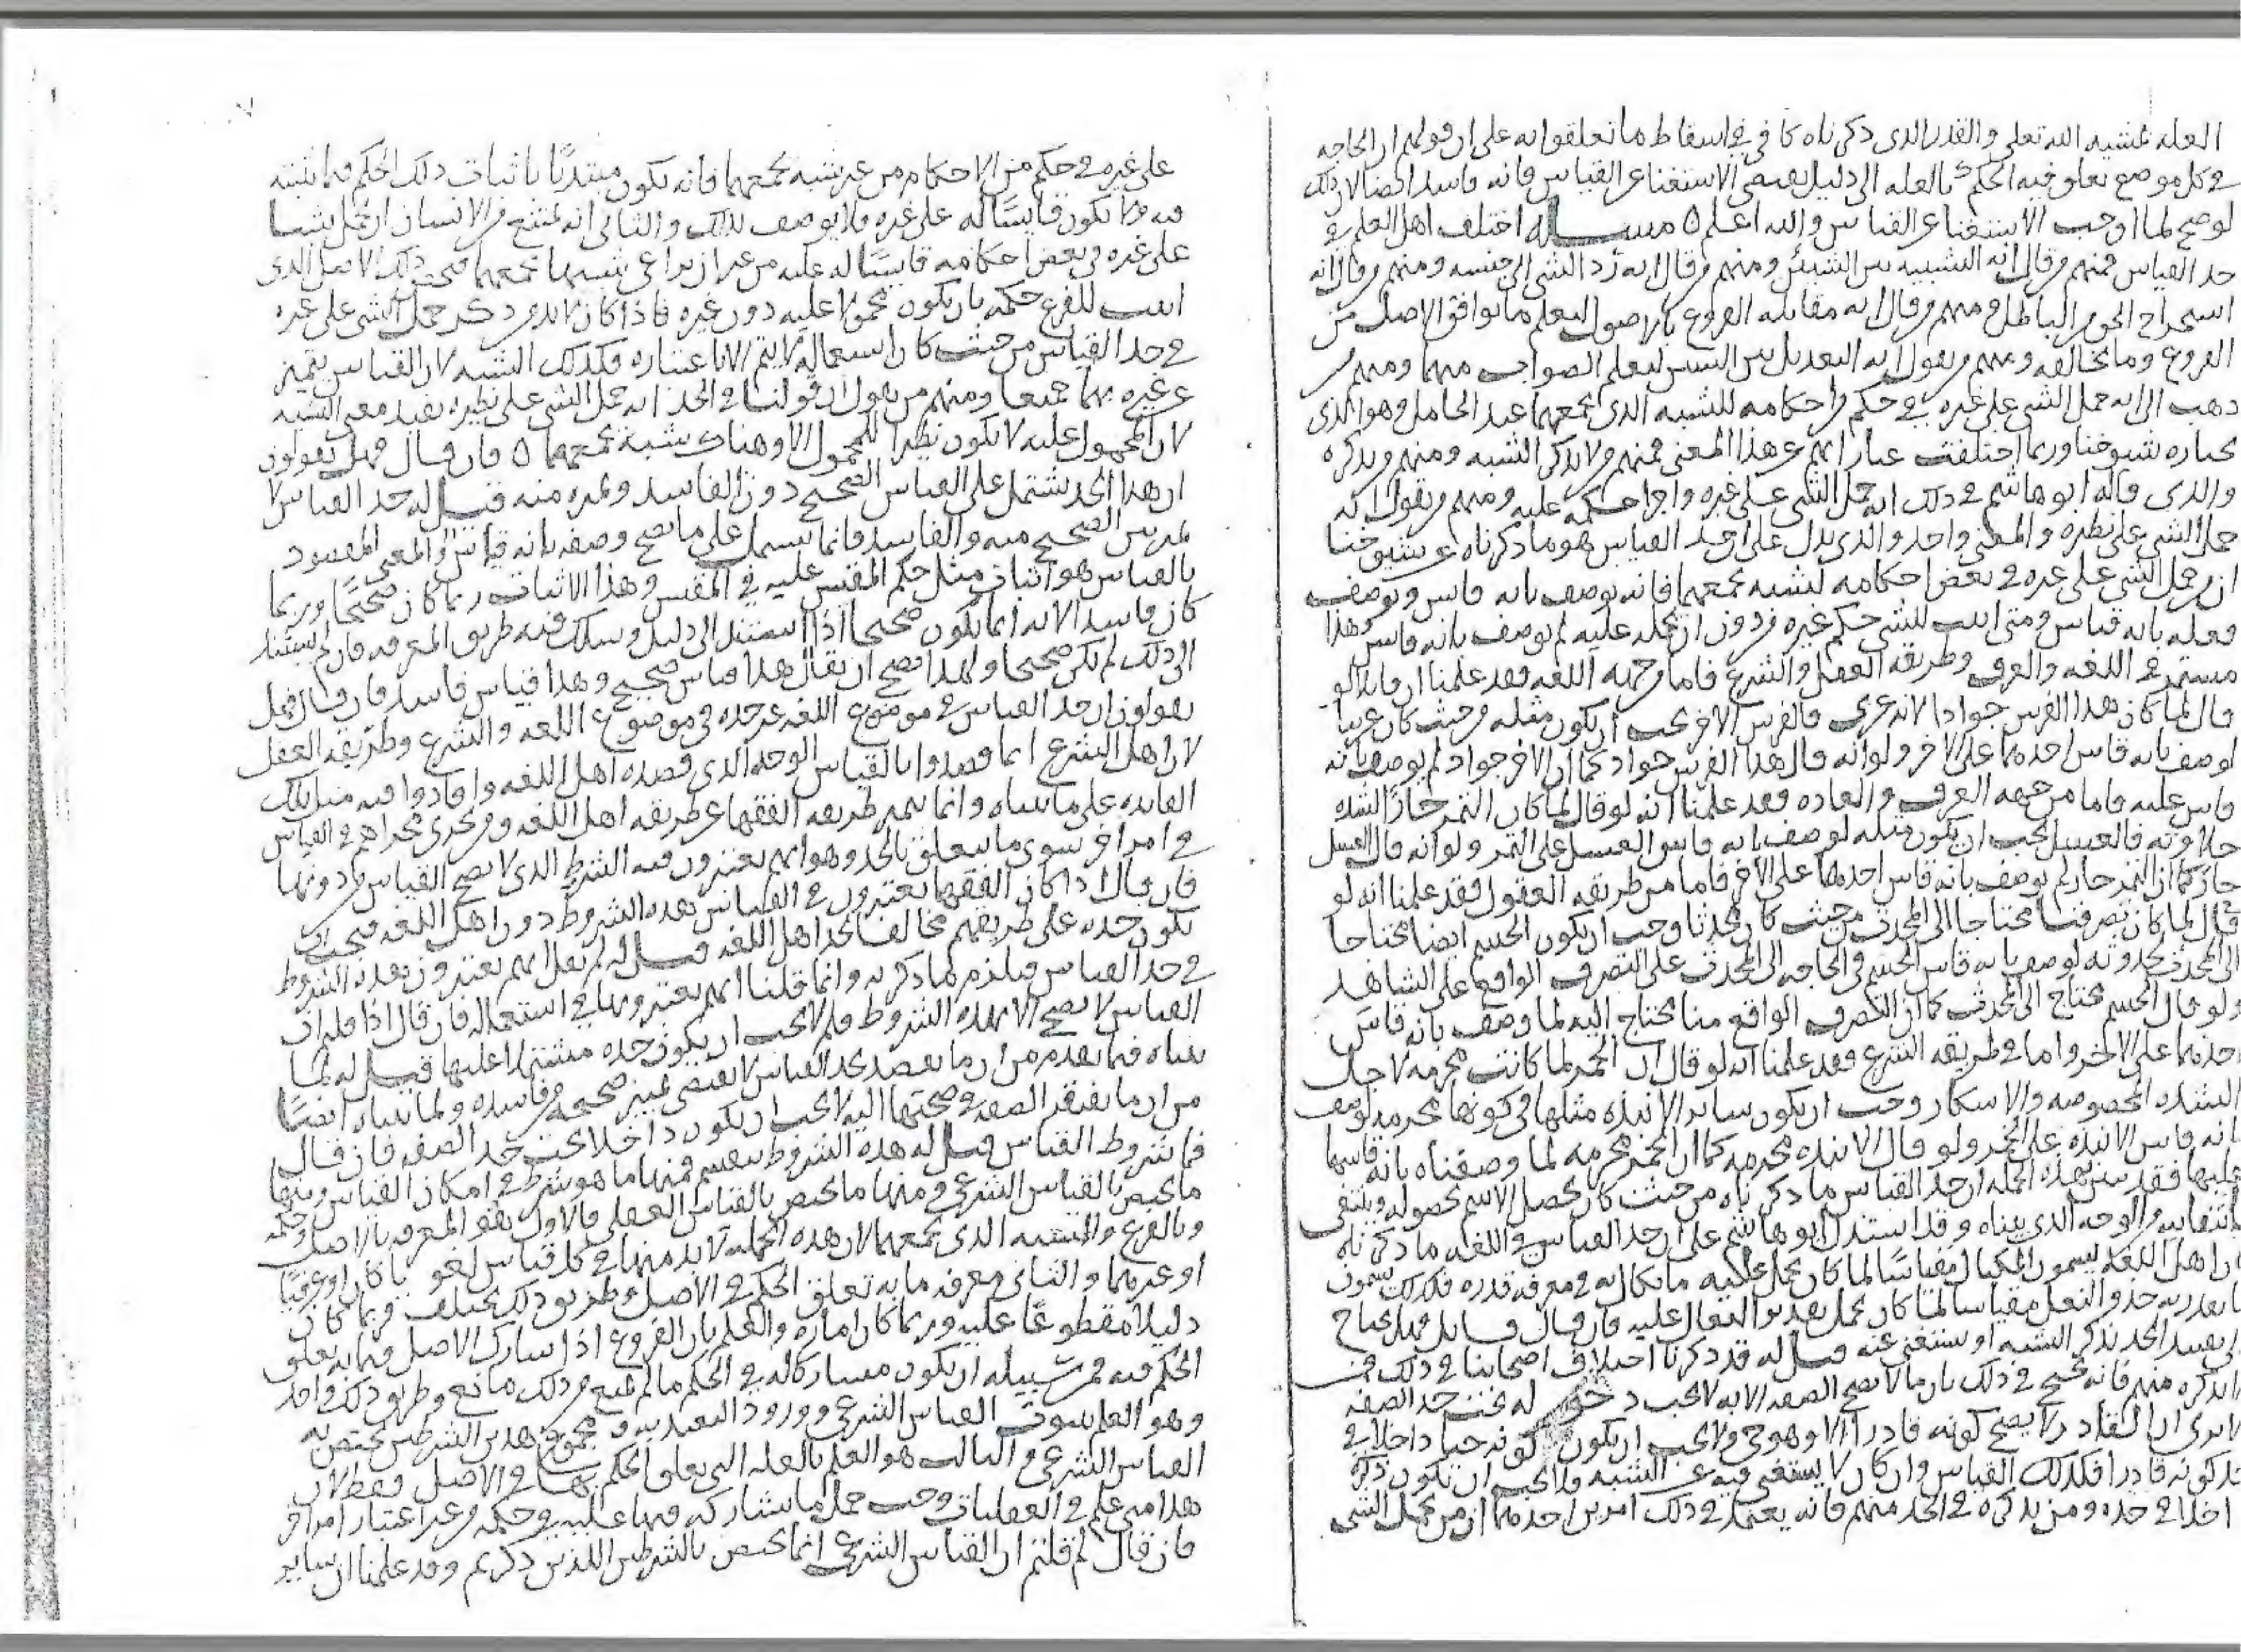 العله لمشيه الله تعلى والقدر الدى دكرناه كافى فى اسقاط ما تعلقوا به على ان قولهم ان الحاجه
فى كل موضع تعلق فيه الحكم بالعله الى دليل يقتضى الاستغنا عن القياس فانه فاسد ايضا لان ذلك
لو صح لما اوجب الاستغنا عن القياس والله اعلم ٥ مسـاله اختلف اهل العلم فى
حد القياس فمنهم من قال انه التشبيه بين الشيئين ومنهم من قال انه رد الشى الى جنسه ومنهم من قال انه
استخراج الحق من الباطل ومنهم من قال انه مقابله الفروع بالاصول ليعلم ما يوافق الاصل من
الفروع وما يخالفه ومنهم من يقول انه التعديل بين الشيين ليعلم الصواب منهما ومنهم من
دهب الى انه حمل الشى على غيره فى حكم من احكامه للشبه الذى يجمعهما عند الحامل وهو الذى
يختاره شيوخنا وربما اختلفت عباراتهم عن هذا المعنى فمنهم من لا يذكر الشبه ومنهم من يذكره
والدى قاله ابو هاشم فى دلك انه حمل الشى على غيره واجرا حكمه عليه ومنهم من يقول انه
حمل الشى على نظيره والمعنى واحد والدى يدل على ان حد القياس هو ما ذكرناه عن شيوخنا
ان من حمل الشى على غيره فى بعض احكامه لشبه يجمعهما فانه يوصف بانه قايس ويوصف
فعله بانه قياس ومتى اثبت للشى حكم غيره من دون ان يحمله عليه لم يوصف بانه قايس وهذا
مستمر فى اللغه والعرف وطريقه العقل والشرع فاما من جهه اللغه فقد علمنا ان قايلا لو
قال لما كان هدا الفرس جوادا لانه عربى فالفرس الاخر يجب ان يكون مثله من حيث كان عربيا
لوصف بانه قاس احدهما على الاخر ولو انه قال هدا الفرس جواد كما ان الاخر جواد لم يوصف بانه
قاس عليه فاما من جهه العرف والعاده فقد علمنا انه لو قال لما كان التمر حارا لشده
حلاوته فالعسل يجب ان يكون مثله لوصف بانه قاس العسل على التمر ولو انه قال العسل
حار كما ان التمر حار لم يوصف بانه قاس احدهما على الاخر فاما من طريقه العقول فقد علمنا انه لو
قال لما كان تصرفنا محتاجا الى المحدث من حيث كان محدثا وجب ان يكون الجسم ايضا محتاجا
الى المحدث لحدوثه لوصف بانه قاس الجسم فى الحاجه الى المحدث على التصرف الواقع على الشاهد
ولو قال الجسم محتاج الى المحدث كما ان التصرف الواقع منا محتاج اليه لما وصف بانه قاس
احدهما على الاخر واما فى طريقه الشرع فقد علمنا انه لو قال ان الخمر لما كانت محرمه لاجل
الشده المخصوصه والاسكار وجب ان يكون ساير الانبذه مثلها فى كونها محرمه لوصف
بانه قاس الانبذه على الخمر ولو قال الانبذه محرمه كما ان الخمر محرمه لما وصفناه بانه قاسها
عليها فقد تبين بهذه الجمله ان حد القياس ما دكرناه من حيث كان يحصل الاسم بحصوله وينتفى
بانتفايه والوجه الذى بيناه وقد استدل ابو هاشم على ان حد القياس فى اللغه ما ذكرناه
بان اهل اللغه يسمون المكيال مقياسا لما كان يحمل عليه ما يكال به فى معرفه قدره فكذلك يسمون
ما يقدر به حذو النعل مقياسا لما كان يحمل تقدير النعال عليه فان قال قايل فهل يحتاج
فى تفسير الحد بذكر الشبه او يستغنى عنه قيل له قد دكرنا اختلاف اصحابنا فى ذلك فمن
لا يذكره منهم فانه يحتج فى ذلك بان ما لا يصح الصفه الا به لا يجب دخوله تحت حد الصفه
الا ترى ان القادر لا يصح كونه قادرا الا وهو حى ولا يجب ان يكون كونه حيا داخلا فى
حد كونه قادرا فكذلك القياس وان كان لا يستغنى فيه عن الشبه فلا يجب ان يكون ذكره
داخلا فى حده ومن يذكره فى الحد منهم فانه يعتمد فى ذلك امرين احدهما ان من يحمل الشى
على غيره فى حكم من الاحكام من غير شبه يجمعهما فانه يكون مبتديا باثبات دلك الحكم فيما اثبته
فيه ولا يكون قايسا له على غيره ولا يوصف بذلك والثانى انه يمتنع من الانسان ان يحمل شيا
على غيره فى بعض احكامه قايسا له عليه من غير ان يراعى شبها يجمعهما فيحصر ذلك الاصل الذى
اثبت للفرع حكمه بان يكون محمولا عليه دون غيره فاذا كان لا بد من دكر حمل الشى على غيره
فى حد القياس من حيث كان استعماله لا يتم الا باعتباره فكدلك الشبه لان القياس يتميز
عن غيره بهما جميعا ومنهم من يقول ان قولنا فى الحد انه حمل الشى على نظيره يفيد معنى الشبه
لان المحمول عليه لا يكون نظيرا للمحمول الا وهناك شبه يجمعهما ٥ فان قال فهل تقولون
ان هدا الحد يشتمل على القياس الصحيح دون الفاسد وتميزه منه قيل له حد القياس لا
يميز بين الصحيح منه والفاسد وانما يشتمل على ما يصح وصفه بانه قياس لان المعنى المقصود
بالقياس هو اثبات مثل حكم المقيس عليه فى المقيس وهذا الاثبات ربما كان صحيحا وربما
كان فاسدا لانه انما يكون صحيحا اذا استند الى دليل وسلك فيه طريق المعرفه فان لم يستند
الى دلك لم يكن صحيحا ولهدا يصح ان يقال هذا قياس صحيح وهذا قياس فاسد فان قال فهل
تقولون ان حد القياس فى موضوع اللغه غير حده فى موضوع اللغه والشرع وطريقه العقل
لان اهل الشرع انما قصدوا بالقياس الوجه الدى قصده اهل اللغه وافادوا فيه مثل تلك
الفايده على ما بيناه وانما تتميز طريقه الفقها عن طريقه اهل اللغه ومن يجرى مجراهم فى القياس
فى امر اخر سوى ما يتعلق بالحد وهو انهم يعتبرون فيه الشرط الذى لا يصح القياس من دونها
فان قال اذا كان الفقها يعتبرون فى القياس بعده الشروط دون اهل اللغه فيجب ان
يكون حده على طريقهم مخالفا لحد اهل اللغه قيل له لم نقل انهم يعتبرون بعده الشروط
فى حد القياس فيلزم ما دكرته وانما قلنا انهم يعتبرونها فى استعماله فان قال اذا قلتم ان
القياس لا يصح الا بهده الشروط فلم لا يجب ان يكون حده مشتملا عليها قيل له لما
بيناه فيما تقدم من ان ما يقصد بحد القياس لا يقتضى تمييز صحيحه من فاسده ولما بيناه ايضا
من ان ما يفتقر الصفه فى صحتها اليه لا يجب ان يكون داخلا تحت حد الصفه فان قال
فما شروط القياس قيل له هده الشروط تنقسم فمنها ما هو شرط فى امكان القياس ومنها
ما يختص بالقياس الشرعى ومنها ما يختص بالقياس العقلى فالاول هو المعرفه بالاصل وحكمه
وبالفرع والشبه الذى يجمعهما لان هده الجمله لا بد منها فى كل قياس لغويا كان او عرفيا
او غيرهما والثانى معرفه ما به تعلق الحكم فى الاصل وطريق ذلك يختلف فربما كان
دليلا مقطوعا عليه وربما كان اماره والعلم بان الفروع اذا شارك الاصل فيما به تعلق
الحكم فيه فمن سبيله ان يكون مشاركا له فى الحكم ما لم يمنع من ذلك مانع وطريق ذلك واحد
وهو العلم بثبوت القياس الشرعى وورود التعبد به ومجموع هدين الشرطين يختص به
القياس الشرعى والثالث هو العلم بالعله التى تعلق الحكم بها فى الاصل فقط لان
هدا متى علم فى العقليات وجب حمل ما يشاركه فيها عليه فى حكمه من غير اعتبار امر اخر
فان قال لم قلتم ان القياس الشرعى انما يختص بالشرطين اللذين ذكرتم وقد علمنا ان ساير